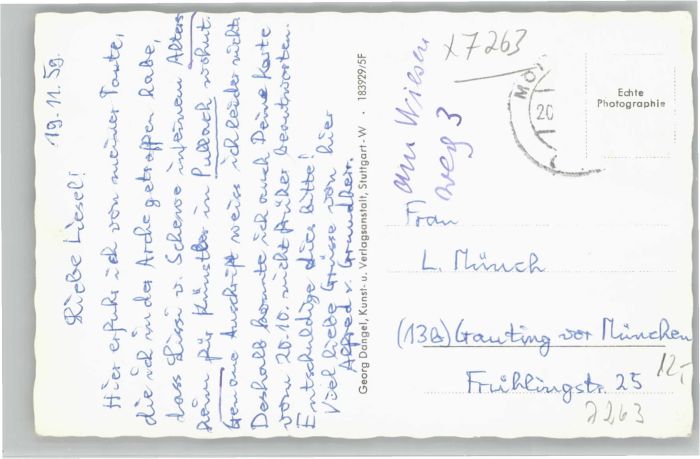 19.11.59.
Liebe Liesel!
Hier erfuhr ich von meiner Tante,
die ich in der Arche getroffen habe,
dass Lissi v. Schewe in einem Alters
heim für Künstler in Pullach wohnt.
Genaue Anschrift weiss ich leider nicht.
Deshalb konnte ich auch Deine Karte
vom 20.10. nicht früher beantworten.
Entschuldige dies bitte!
Viel liebe Grüsse von hier
Alfred v. Grundherr.
Georg Dangel, Kunst- u. Verlagsanstalt, Stuttgart-W · 183929/5F
x7263
am Wiesen
weg 3
20
Echte
Photographie
Frau
L. Münch
(13b) Gauting vor München
Frühlingstr. 25
12,-
7263